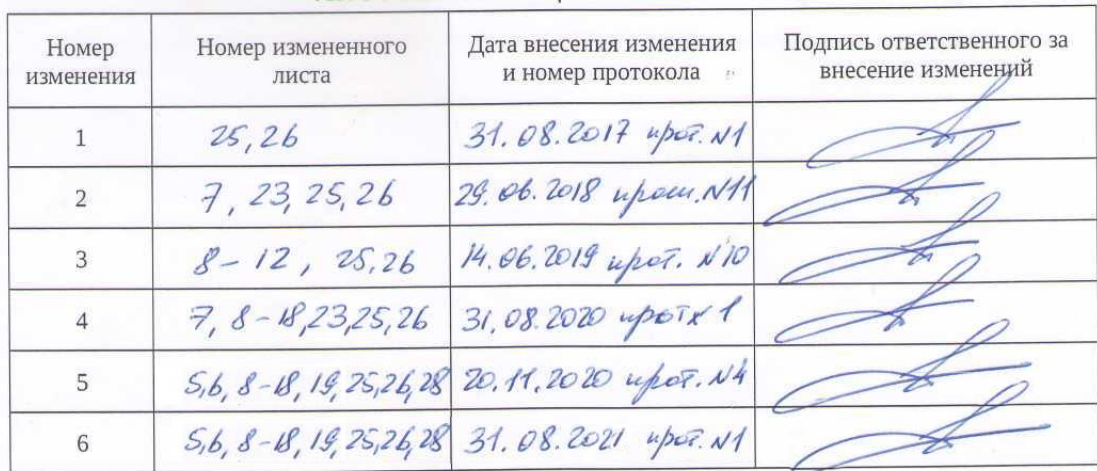 Номер изменения Номер измененного листа Дата внесения изменения и номер протокола Подпись ответственного за внесение изменений
1 25,26 31.08.2017 прот. N1
2 7, 23, 25, 26 29.06.2018 прот. N11
3 8-12, 25,26 14.06.2019 прот. N10
4 7, 8-18,23,25,26 31.08.2020 прот N 1
5 5,6, 8-18, 19,25,26,28 20.11.2020 прот. N4
6 5,6, 8-18, 19,25,26,28 31.08.2021 прот. N1